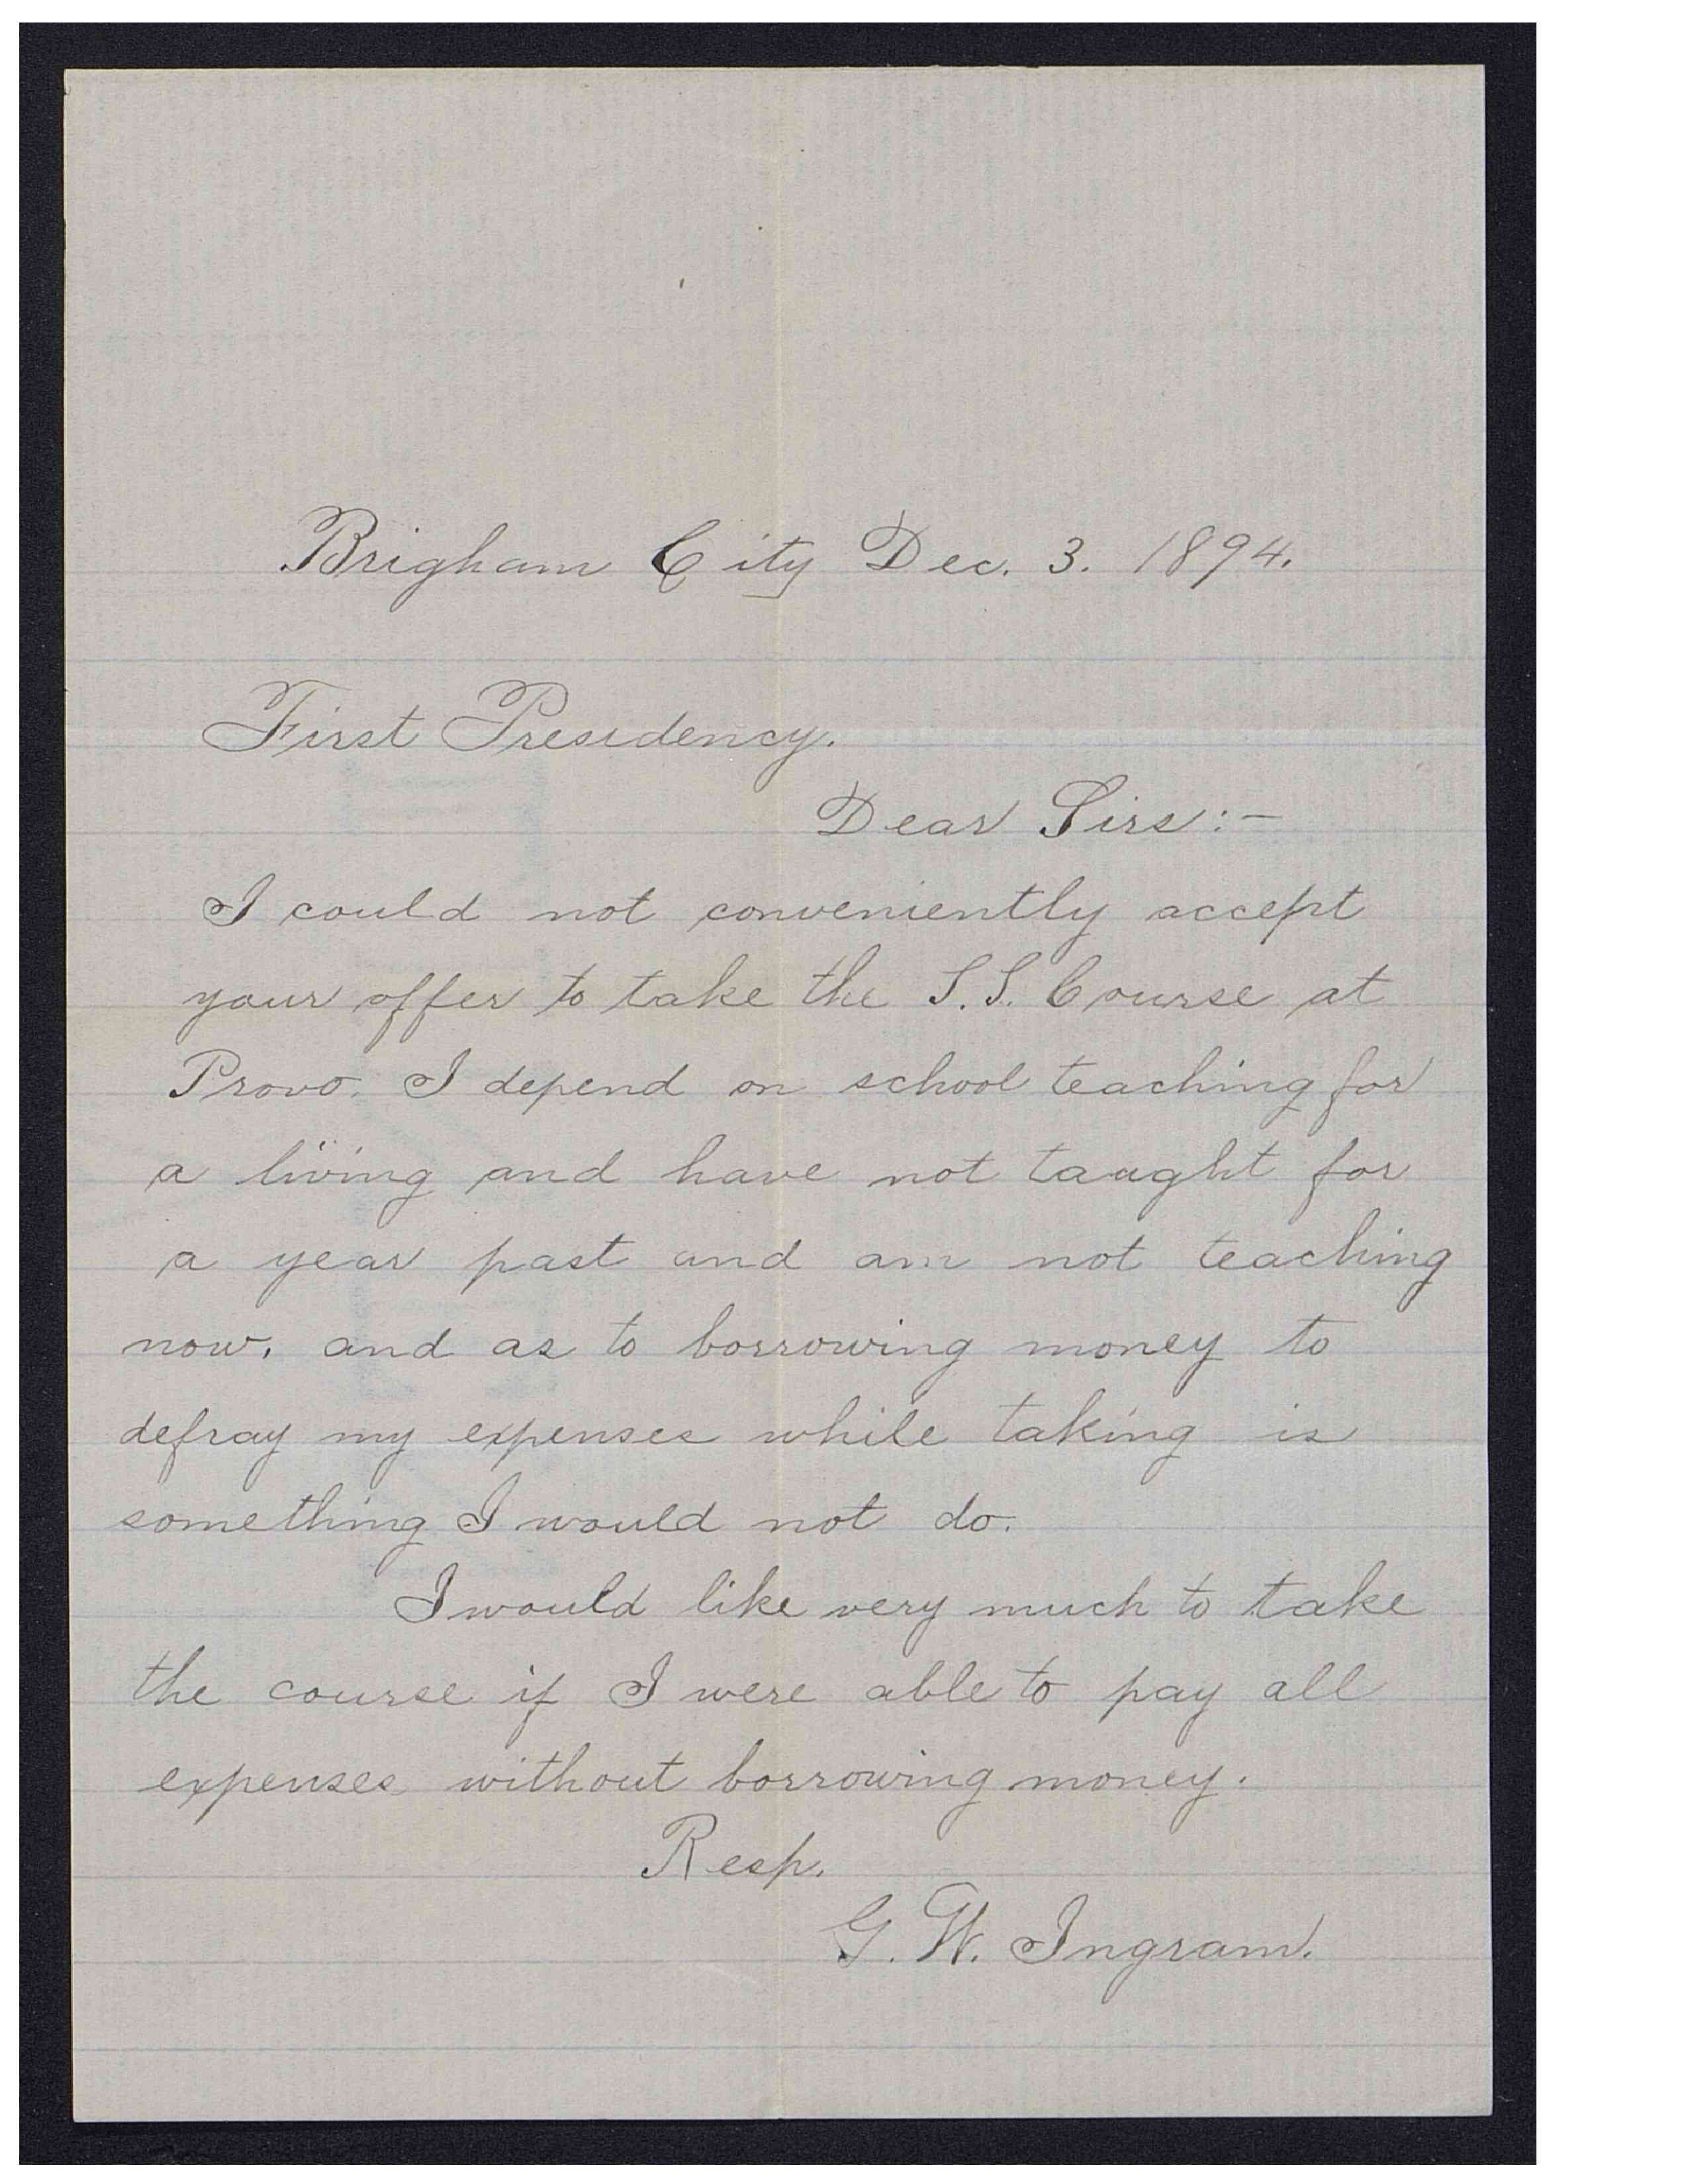 Brigham City Dec. 3. 1894.
First Presidency.
Dear Sirs:-
I could not conveniently accept
your offer to take the S.S. Course at
Provo. I depend on school teaching for
a living and have not taught for
a year past and am not teaching
now. and as to borrowing money to
defray my expenses while taking is
something I would not do.
I would like very much to take
the course if I were able to pay all
expenses without borrowing money.
Resp.
G. W. Ingram.